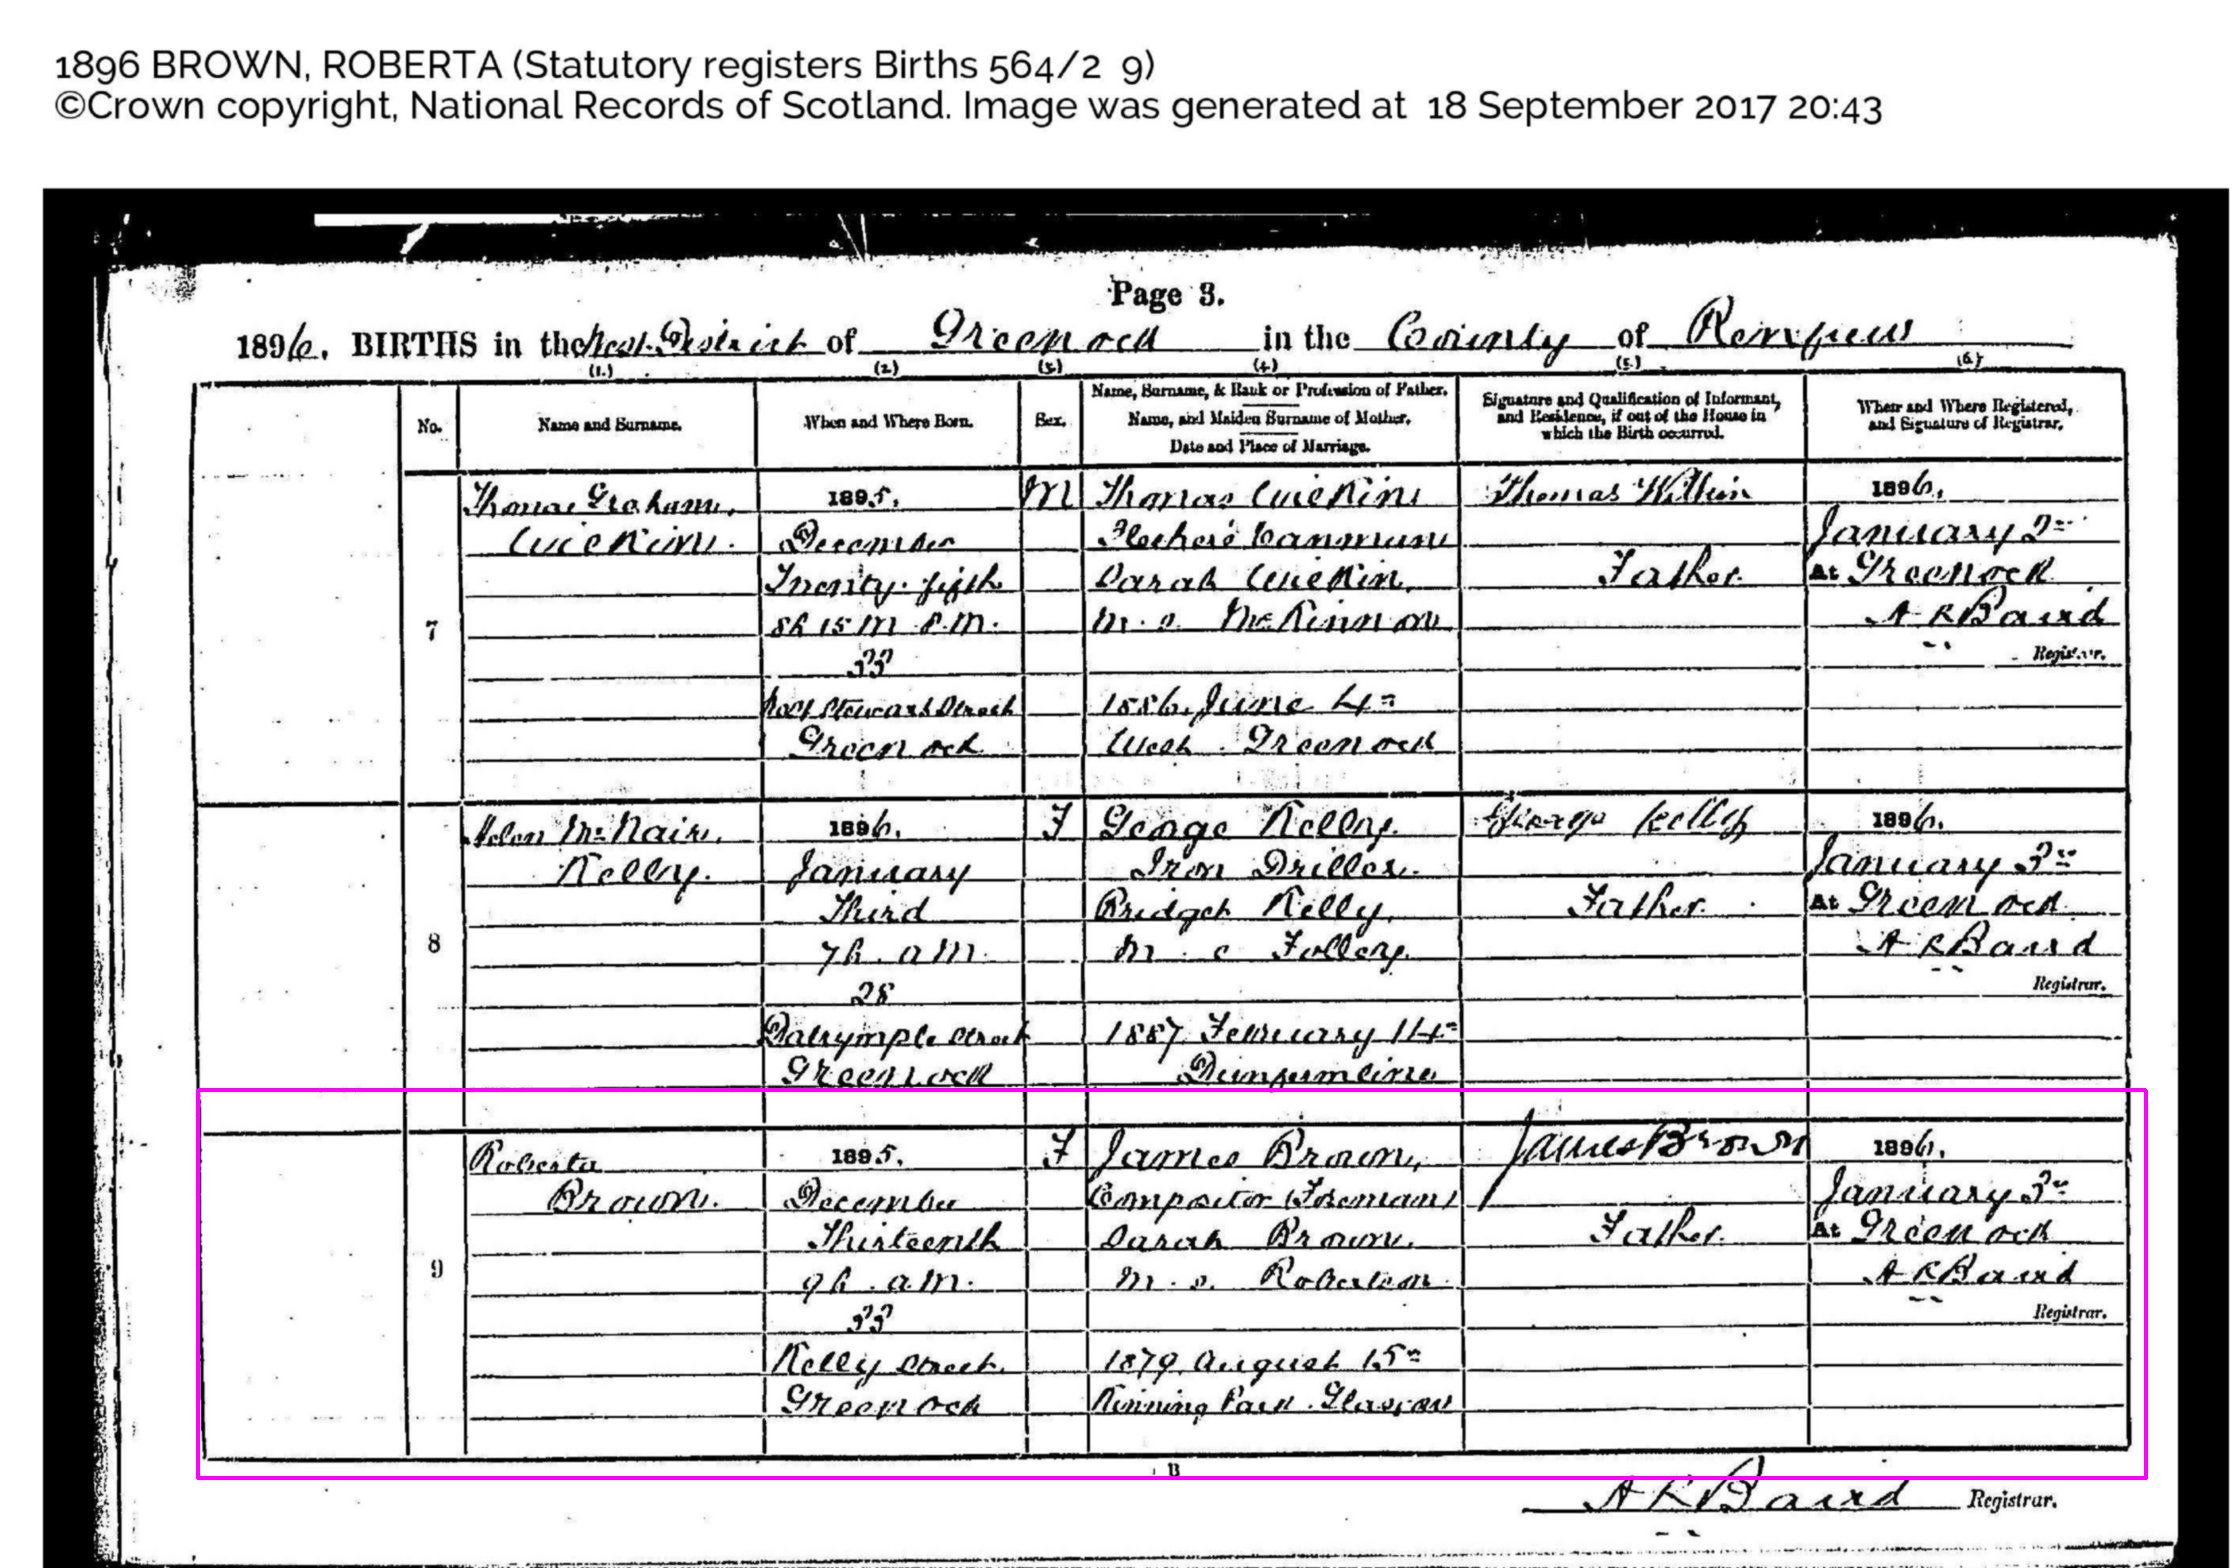 1896 BROWN, ROBERTA (Statutory registers Births 564/2 9)
©Crown copyright, National Records of Scotland. Image was generated at 18 September 2017 20:43
Page 3.
1896. BIRTHS in the West District of Greenock in the County of Renfrew
(1.) (2.) (3.) (4.) (5.) (6.)
No.
Name and Surname.
When and Where Born.
Sex.
Name, Surname, & Rank or Profession of Father.
Name, and Maiden Surname of Mother.
Date and Place of Marriage.
Signature and Qualification of Informant,
and Residence, if out of the House in
which the Birth occurred.
When and Where Registered,
and Signature of Registrar.
7
Thomas Graham
1895.
December
Twenty-fifth
8h 15m P.M.
33
Roxb Stewart Street
Greenock
M
Thomas
Sarah
m. s. McKinnon
1886, June 4th
West Greenock
Thomas
Father
1896,
January 2nd
At Greenock
A R Baird
Registrar.
8
Helen McNair
Kelly.
1896.
January
Third
7h. a.m.
28
Dalrymple Street
Greenock
F
George Kelly
Iron Driller
Bridget Kelly
m. s.
1887, February 14th
Dunfermline
George Kelly
Father
1896.
January 3rd
At Greenock
A R Baird
Registrar.
9
Roberta
Brown.
1895.
December
Thirteenth
9h. a.m.
33
Kelly Street
Greenock
F
James Brown,
Compositor (Foreman)
Sarah Brown
m. s. Robertson
1879, August 15th
Kinning Park. Glasgow
James Brown
Father.
1896.
January 3rd
At Greenock
A R Baird
Registrar.
B
A R Baird Registrar.